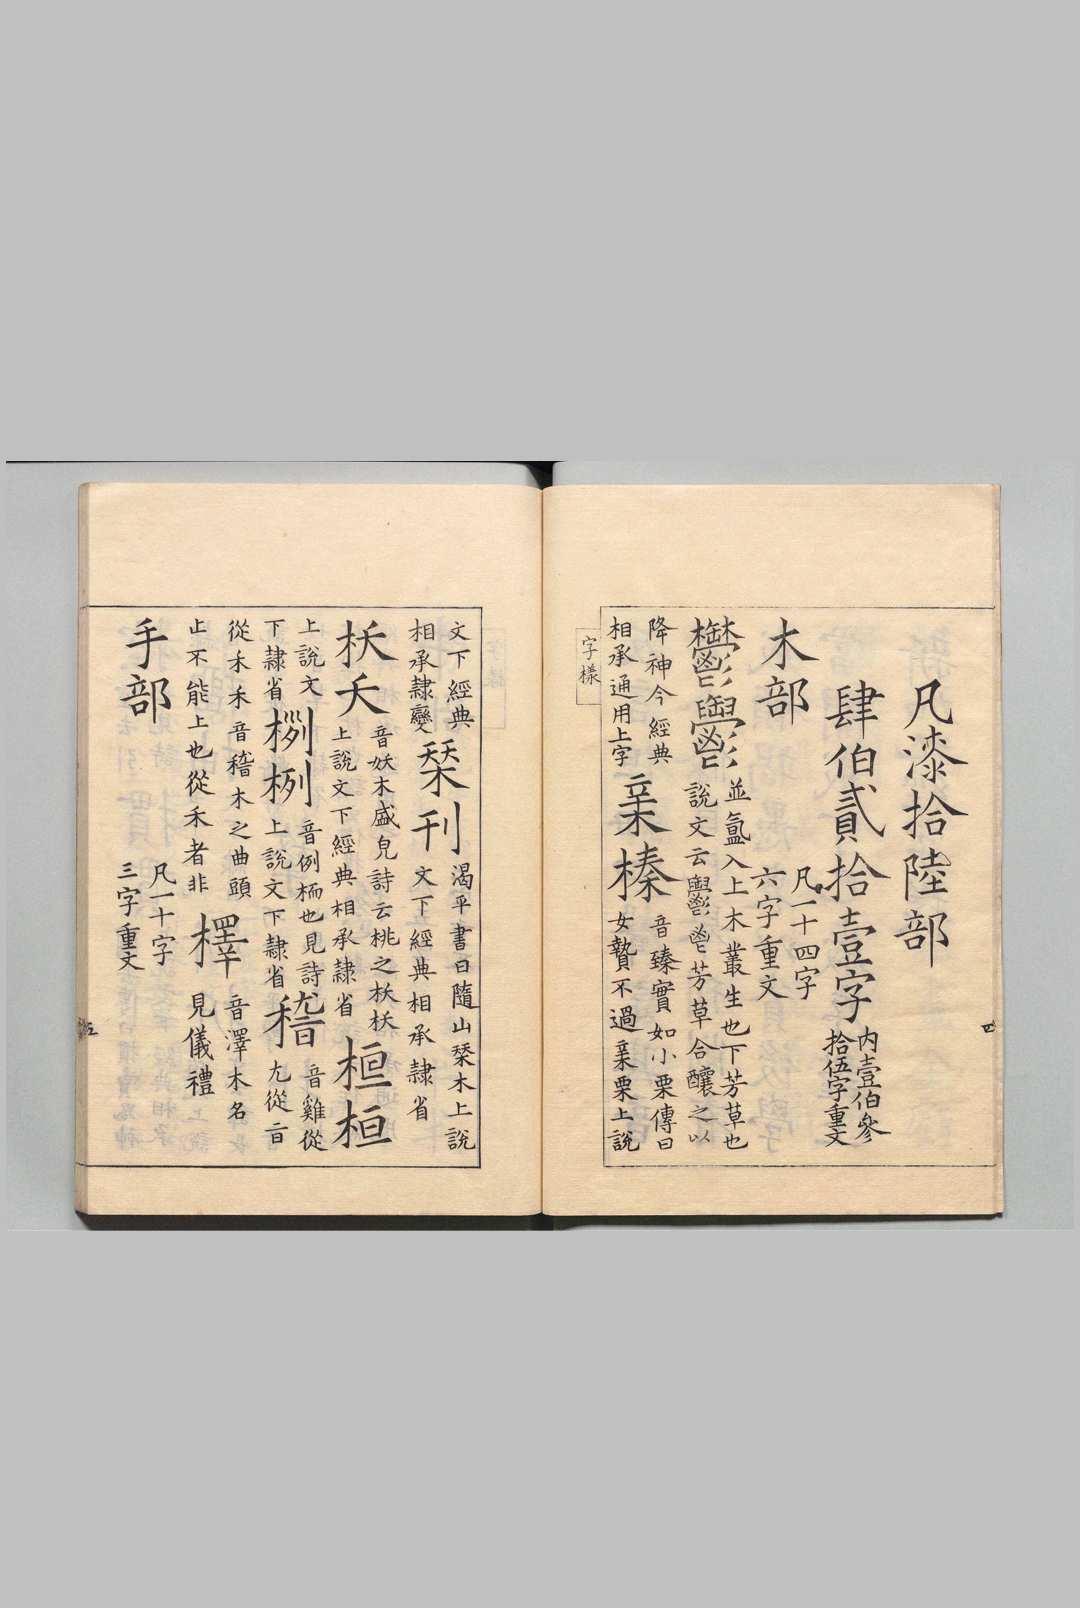 凡漆拾陸部
肆伯貳拾壹字 内壹伯參拾伍字重文
木部 凡一十四字六字重文
欝鬱 並氳入上木叢生也下芳草也說文云鬱鬯芳草合釀之以
降神今經典相承通用上字 亲榛 音臻實如小栗傳曰女贄不過亲栗上說
字樣
四
文下經典相承隸變 栞刊 渴平書曰隨山栞木上說文下經典相承隸省
枖夭 音妖木盛皃詩云桃之枖枖上說文下經典相承隸省 桓桓
上說文下隸省 栵栵 音例栭也見詩上說文下隸省 稽 音雞從尤從旨
從禾禾音稽木之曲頭止不能上也從禾者非 檡 音澤木名見儀禮
手部 凡一十字三字重文
五